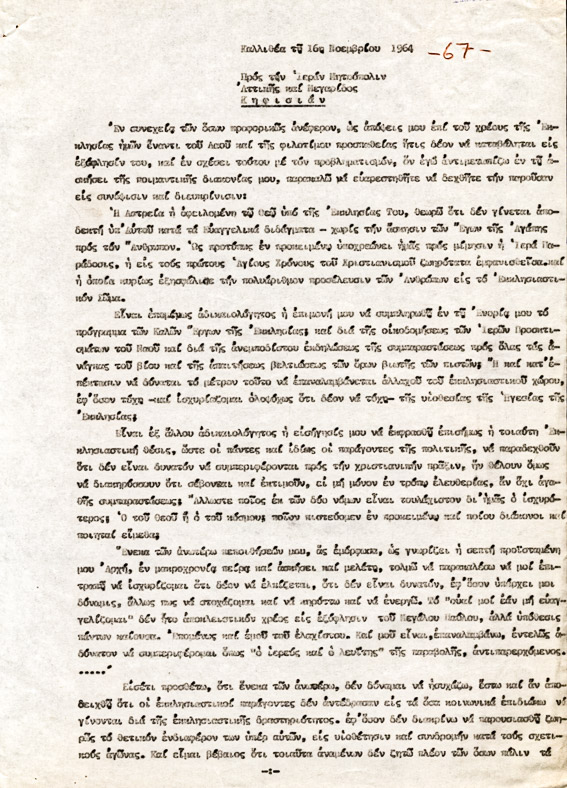 Καλλιθέα τῇ 16ῃ Νοεμβρίου 1964 -67-
Πρός τήν Ἱεράν Μητρόπολιν
Ἀττικῆς καί Μεγαρίδος
Κηφισιάν
Ἐν συνεχείᾳ τῶν ὅσων προφορικῶς ἀνέφερον, ὡς ἀπόψεις μου ἐπί τοῦ χρέους τῆς Ἐκ-
κλησίας ἡμῶν ἔναντι τοῦ Λαοῦ καί τῆς φιλοτίμου προσπαθείας ἥτις δέον νά καταβάληται εἰς
ἐξόφλησίν του, καί ἐν σχέσει τούτου μέ τόν προβληματισμόν, ὅν ἐγώ ἀντιμετωπίζω ἐν τῇ ἀ-
σκήσει τῆς ποιμαντικῆς διακονίας μου, παρακαλῶ νά εὐαρεστηθῆτε νά δεχθῆτε τήν παροῦσαν
εἰς σύνοψιν καί διευκρίνισιν:
Ἡ Λατρεία ἡ ὀφειλομένη τῷ Θεῷ ὑπό τῆς Ἐκκλησίας Του, θεωρῶ ὅτι δέν γίνεται ἀπο-
δεκτή ὑπ' Αὐτοῦ κατά τά Εὐαγγελικά διδάγματα - χωρίς τήν ἄσκησιν τῶν Ἔργων τῆς Ἀγάπης
πρός τόν Ἄνθρωπον. Ὡς πρότυπον ἐν προκειμένῳ ὑποχρεώνει ἡμᾶς πρός μίμησιν ἡ Ἱερά Πα-
ράδοσις, ἡ εἰς τούς πρώτους Ἁγίους Χρόνους τοῦ Χριστιανισμοῦ ζωηρότατα ἐμφανισθεῖσα καί
ἡ ὁποία κυρίως ἐξησφάλισε τήν πολυάριθμον προσέλευσιν τῶν Ἀνθρώπων εἰς τό Ἐκκλησιαστι-
κόν Σῶμα.
Εἶναι ἑπομένως ἀδικαιολόγητος ἡ ἐπιμονή μου νά συμπληρωθῇ ἐν τῇ Ἐνορίᾳ μου τό
πρόγραμμα τῶν Καλῶν Ἔργων τῆς Ἐκκλησίας; καί διά τῆς οἰκοδομήσεως τῶν Ἱερῶν Προσκτι-
σμάτων τοῦ Ναοῦ καί διά τῆς ἀνεμποδίστου ἐκδηλώσεως τῆς συμπαραστάσεως πρός ὅλας τάς ἀ-
νάγκας τοῦ βίου καί τῆς ἀπαιτήσεως βελτιώσεως τῶν ὅρων βιωτῆς τῶν πιστῶν; Ἤ καί κατ' ἐ-
πέκτασιν νά δύναται τό μέτρον τοῦτο νά ἐπαναλαμβάνεται ἀλλαχοῦ τοῦ ἐκκλησιαστικοῦ χώρου,
ἐφ' ὅσον τύχῃ -καί ἰσχυρίζομαι ὁλοψύχως ὅτι δέον νά τύχῃ- τῆς υἱοθεσίας τῆς Ἡγεσίας τῆς
Ἐκκλησίας;
Εἶναι ἐξ ἄλλου ἀδικαιολόγητος ἡ εἰσήγησίς μου νά ἐκφρασθῇ ἐπισήμως ἡ τοιαύτη Ἐκ-
κλησιαστική θέσις, ὥστε οἱ πάντες καί ἰδίως οἱ παράγοντες τῆς πολιτικῆς, νά παραδεχθοῦν
ὅτι δέν εἶναι δυνατόν νά συμπεριφέρονται πρός τήν χριστιανικήν πρᾶξιν, ἥν θέλουν ὅμως
νά διακηρύσσουν ὅτι σέβονται καί ἐκτιμοῦν, εἰ μή μόνον ἐν τρόπῳ ἐλευθερίας, ἄν ὄχι ἀγα-
θῆς συμπαραστάσεως; Ἄλλωστε ποῖος ἐκ τῶν δύο νόμων εἶναι τουλάχιστον δι' ἡμᾶς ὁ ἰσχυρό-
τερος; Ὁ τοῦ Θεοῦ ἤ ὁ τοῦ κόσμου; ποῖον πιστεύομεν ἐν προκειμένῳ καί ποίου διάκονοι καί
ποιηταί εἴμεθα;
Ἕνεκα τῶν ἀνωτέρω πεποιθήσεών μου, ἅς ἐμόρφωσα, ὡς γνωρίζει ἡ σεπτή προϊσταμένη
μου Ἀρχή, ἐν μακροχρονίᾳ πείρᾳ καί ἀσκήσει καί μελέτῃ, τολμῶ νά παρακαλέσω νά μοί ἐπι-
τραπῇ νά ἰσχυρίζομαι ὅτι δέον νά ἐλπίζεται, ὅτι δέν εἶναι δυνατόν, ἐφ' ὅσον ὑπάρχει μοι
δύναμις, ἄλλως πως νά στοχάζομαι καί νά κηρύττω καί νά ἐνεργῶ. Τό "οὐαί μοί ἐάν μή εὐαγ-
γελίζομαι" δέν ἦτο ἀποκλειστικόν χρέος εἰς ἐξόφλησιν τοῦ Μεγάλου Παύλου, ἀλλά ὑπόθεσις
πάντων καίουσα. Ἑπομένως καί ἐμοῦ τοῦ ἐλαχίστου. Καί μοῦ εἶναι, ἐπαναλαμβάνω, ἐντελῶς ἀ-
δύνατον νά συμπεριφέρομαι ὅπως "ὁ ἱερεύς καί ὁ λευΐτης" τῆς παραβολῆς, ἀντιπαρερχόμενος.
.....
Εἰσέτι προσθέτω, ὅτι ἕνεκα τῶν ἀνωτέρω, δέν δύναμαι νά ἡσυχάζω, ἔστω καί ἄν ἀπο-
δειχθῇ ὅτι οἱ ἐκκλησιαστικοί παράγοντες δέν ἀντέδρασαν εἰς τά ὅσα κοινωνικά ἐπιδιώκω νά
γίνωνται διά τῆς ἐκκλησιαστικῆς δραστηριότητος. ἐφ' ὅσον δέν διακρίνω νά παρουσιασθῇ ζωη-
ρῶς τό θετικόν ἐνδιαφέρον των ὑπέρ αὐτῶν, εἰς υἱοθέτησιν καί συνδρομήν κατά τούς σχετι-
κούς ἀγῶνας. Καί εἶμαι βέβαιος ὅτι τοιαῦτα ἀναμένων δέν ζητῶ πλέον τῶν ὅσων πάλιν τά
-:-